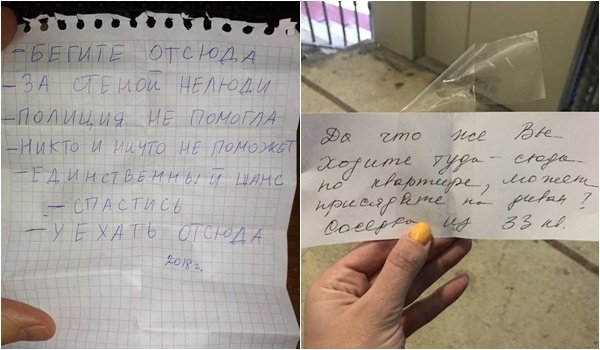 - БЕГИТЕ ОТСЮДА
- ЗА СТЕНОЙ НЕЛЮДИ
- ПОЛИЦИЯ НЕ ПОМОГЛА
- НИКТО И НИЧТО НЕ ПОМОЖЕТ
- ЕДИНСТВЕННЫЙ ШАНС
- СПАСТИСЬ
- УЕХАТЬ ОТСЮДА
2018 г.
Да что же Вы
ходите туда-сюда
по квартире, может
присядете на диван?
Соседка из 33 кв.